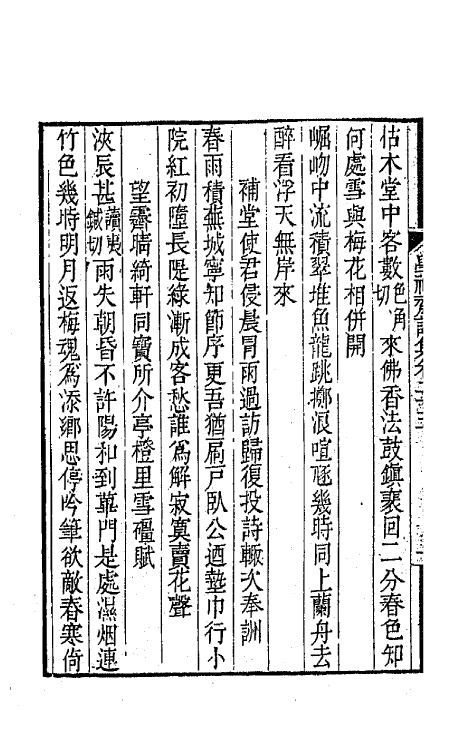 枯木堂中客數色角切來佛香法鼓鎮裵回二分春色知
何處雪與梅花相併開
崛岉中流積翠堆魚龍跳擲浪喧豗幾時同上蘭舟去
醉看浮天無岸來
補堂使君侵晨冐雨過訪歸復投詩輙次奉詶
春雨積蕪城寧知節序更吾猶扃戸臥公迺墊巾行小
院紅初墮長隄綠漸成客愁誰爲解寂寞賣花聲
望霽晴綺軒同寶所介亭橙里雪礓賦
浹辰甚讀夷鍼切雨失朝昏不許陽和到蓽門是處濕烟連
竹色幾時明月返梅魂爲添鄉思停吟筆欲敵春寒倚